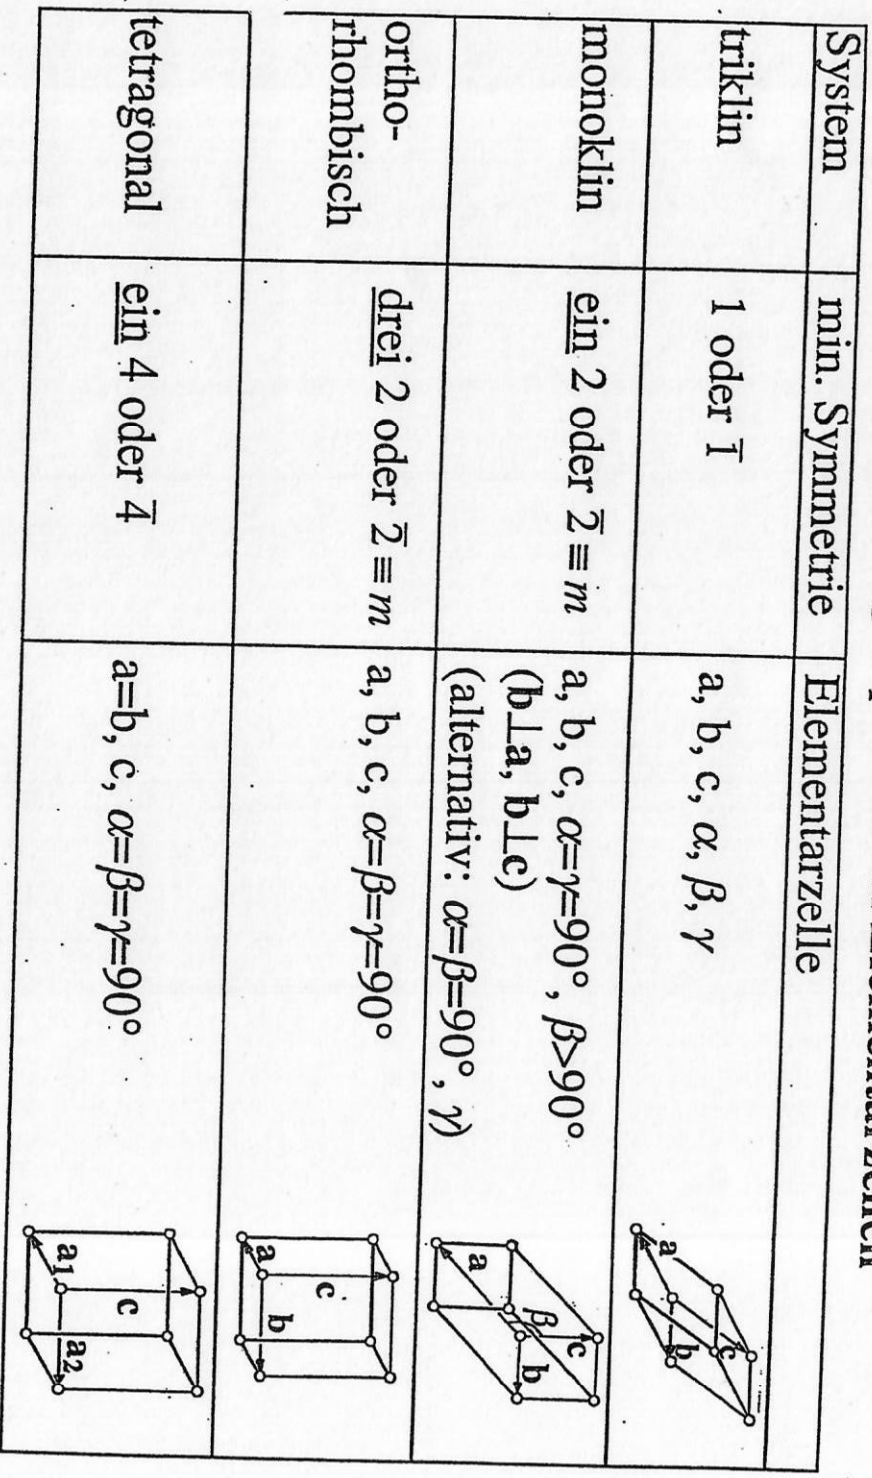 Elementarzellen
System min. Symmetrie Elementarzelle
triklin 1 oder 1̅ a, b, c, α, β, γ
a b c
monoklin ein 2 oder 2̅ ≡ m a, b, c, α=γ=90°, β>90°
(b⊥a, b⊥c)
(alternativ: α=β=90°, γ)
a β c b
ortho-
rhombisch drei 2 oder 2̅ ≡ m a, b, c, α=β=γ=90°
a c b
tetragonal ein 4 oder 4̅ a=b, c, α=β=γ=90°
a₁ c a₂